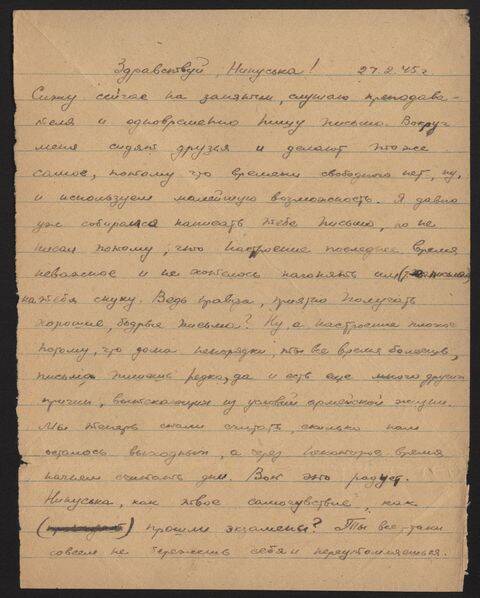 Здравствуй, Нинуська! 27.2.45 г
Сижу сейчас на занятии, слушаю преподава-
теля и одновременно пишу письмо. Вокруг
меня сидят друзья и делают то же
самое, потому что времени свободного нет, ну,
и используем малейшую возможность. Я давно
уж собирался написать тебе письмо, но не
писал потому, что настроение последнее время
неважное и не хотелось нагонять им
на тебя скуку. Ведь правда, приятно получать
хорошие, бодрые письма? Ну а настроение плохое
потому, что дома непорядки, ты все время болеешь,
письма пишешь редко, да и есть еще много других
причин, вытекающих из условий армейской жизни.
Мы теперь стали считать, сколько нам
осталось выходных, а через некоторое время
начнем считать дни. Вот это радует.
Нинуська, как твое самочувствие, как
прошли экзамены? Ты все-таки
совсем не бережешь себя и переутомляешься.